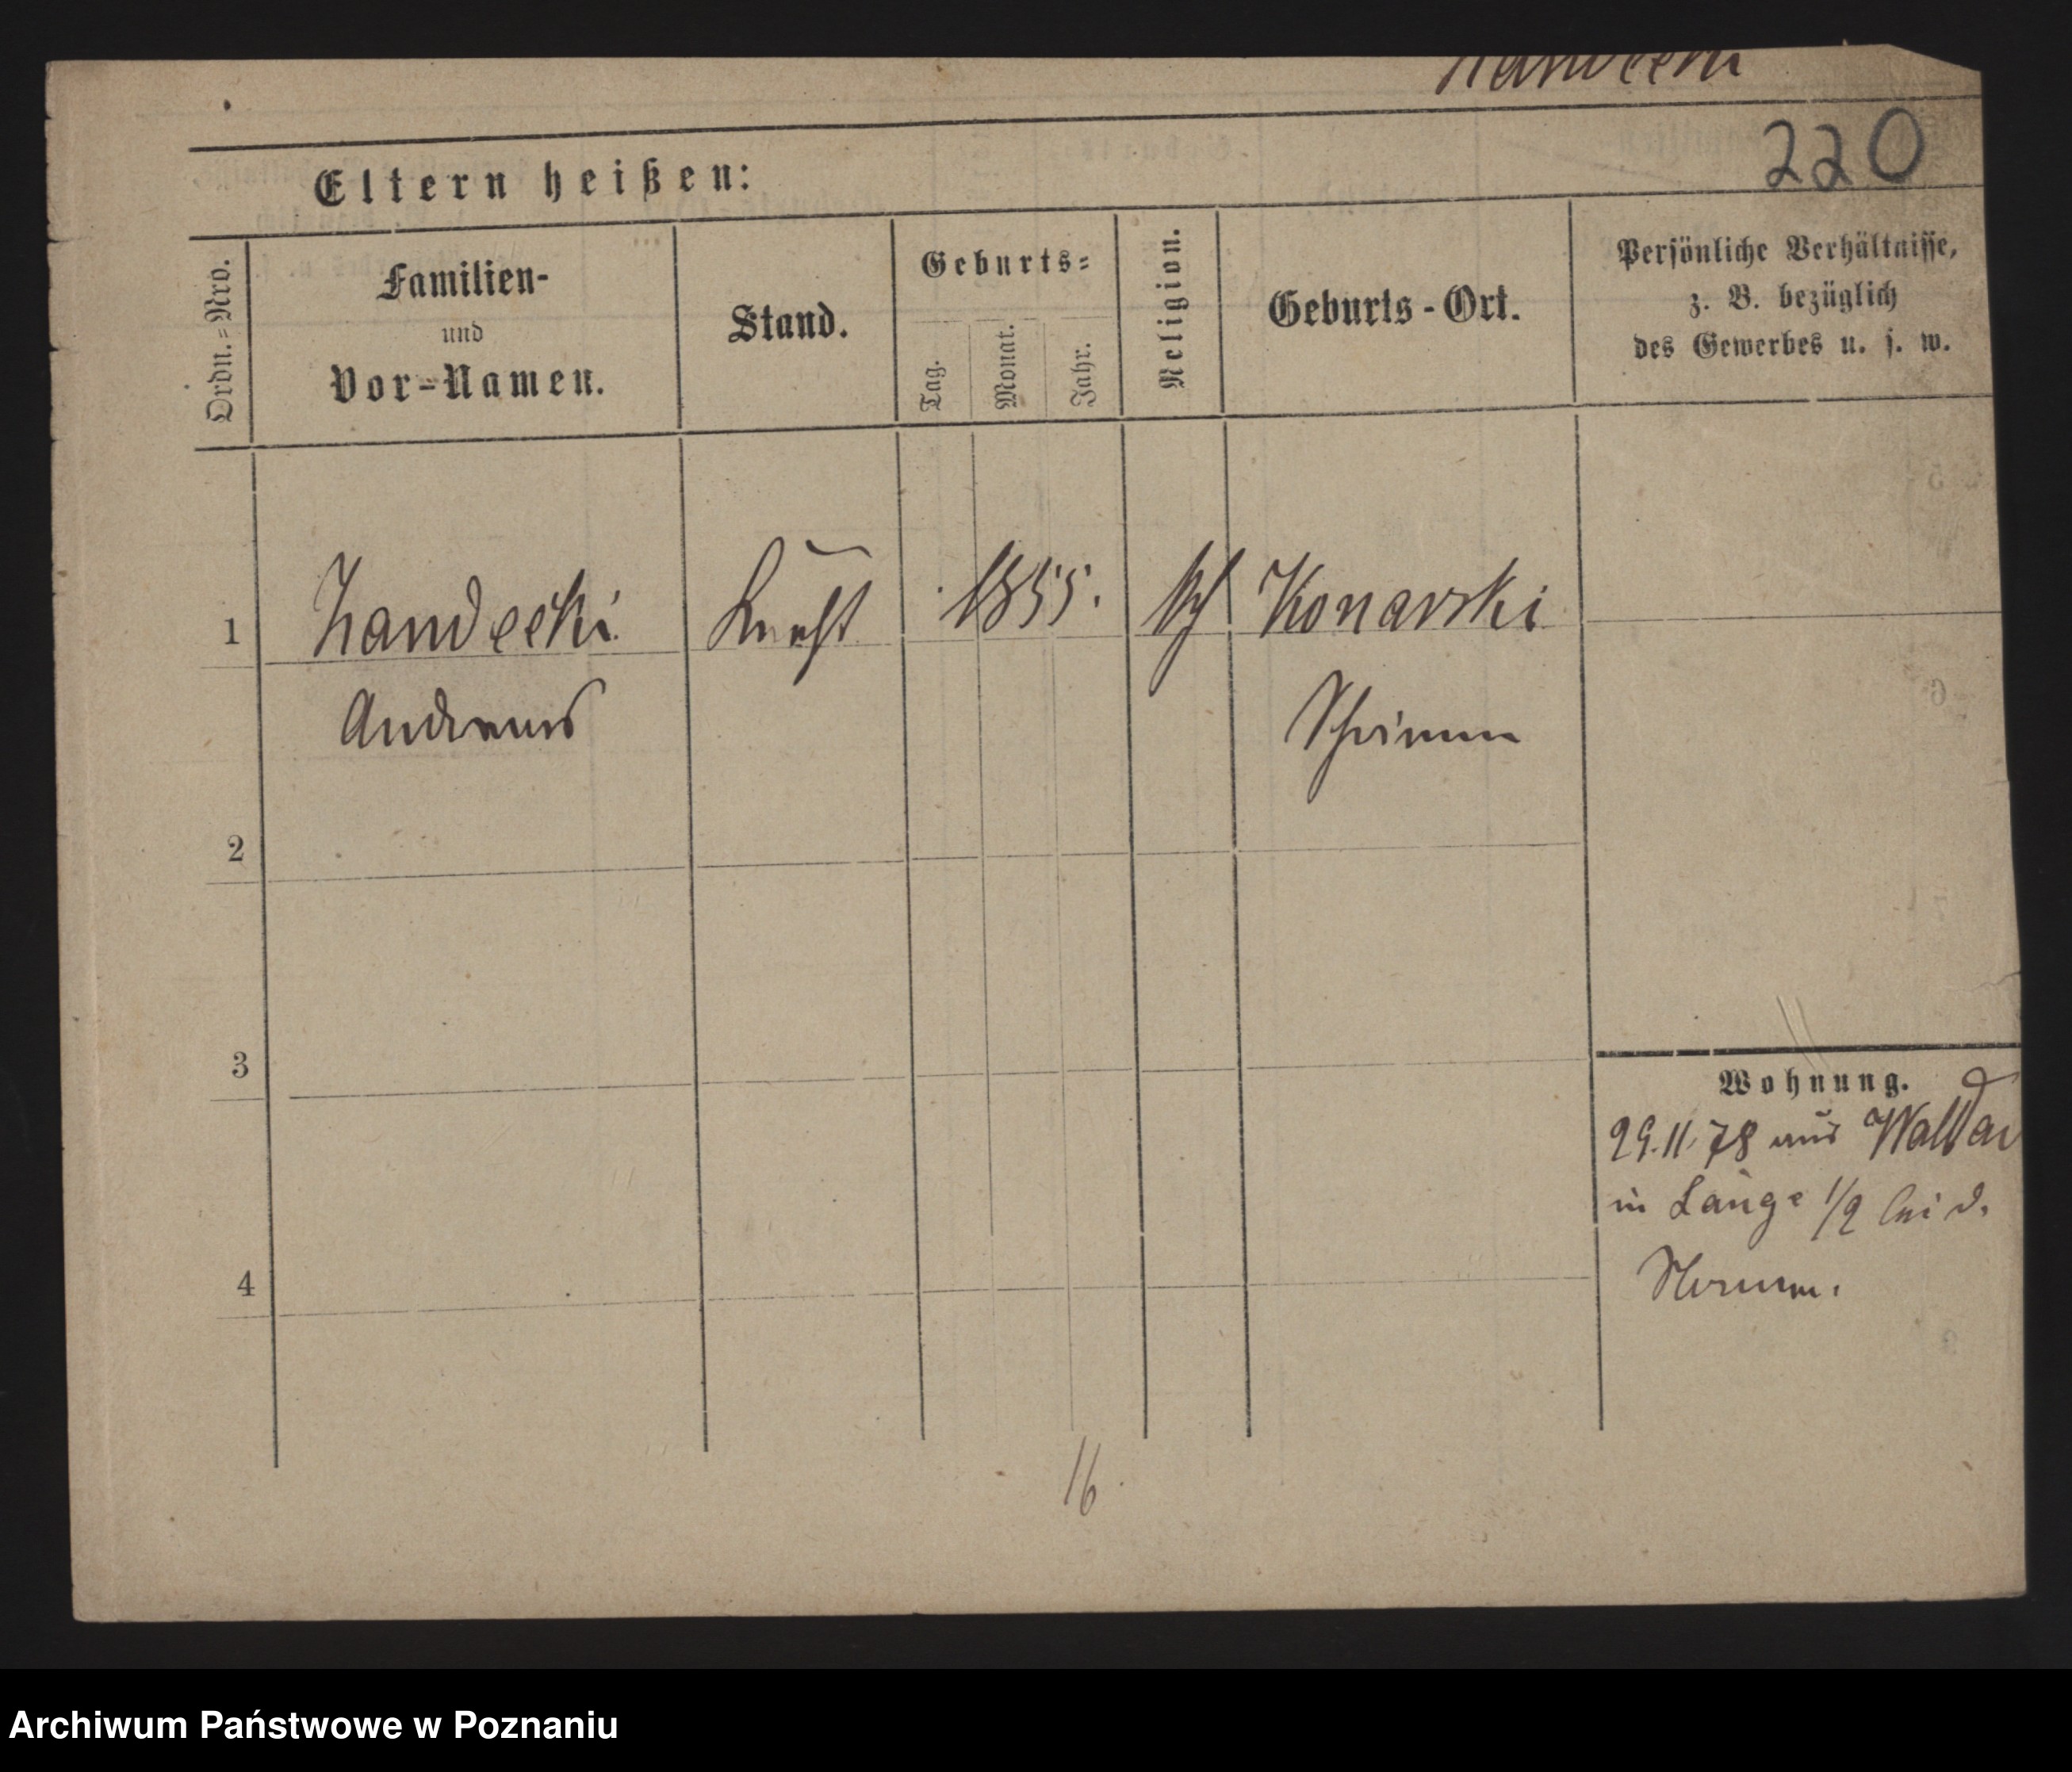 220
Eltern heißen:
Ordn.=Nro.
Familien-
und
Vor=Namen.
Stand.
Geburts=
Tag.
Monat.
Jahr.
Religion.
Geburts-Ort.
Persönliche Verhältnisse,
z. B. bezüglich
des Gewerbes u. s. w.
1
Zandecki
1855.
Konarski
Andreas
Schrimm
2
3
Wohnung.
29.11.78 aus
in Lange 1/2 bei d.
4
16
Archiwum Państwowe w Poznaniu